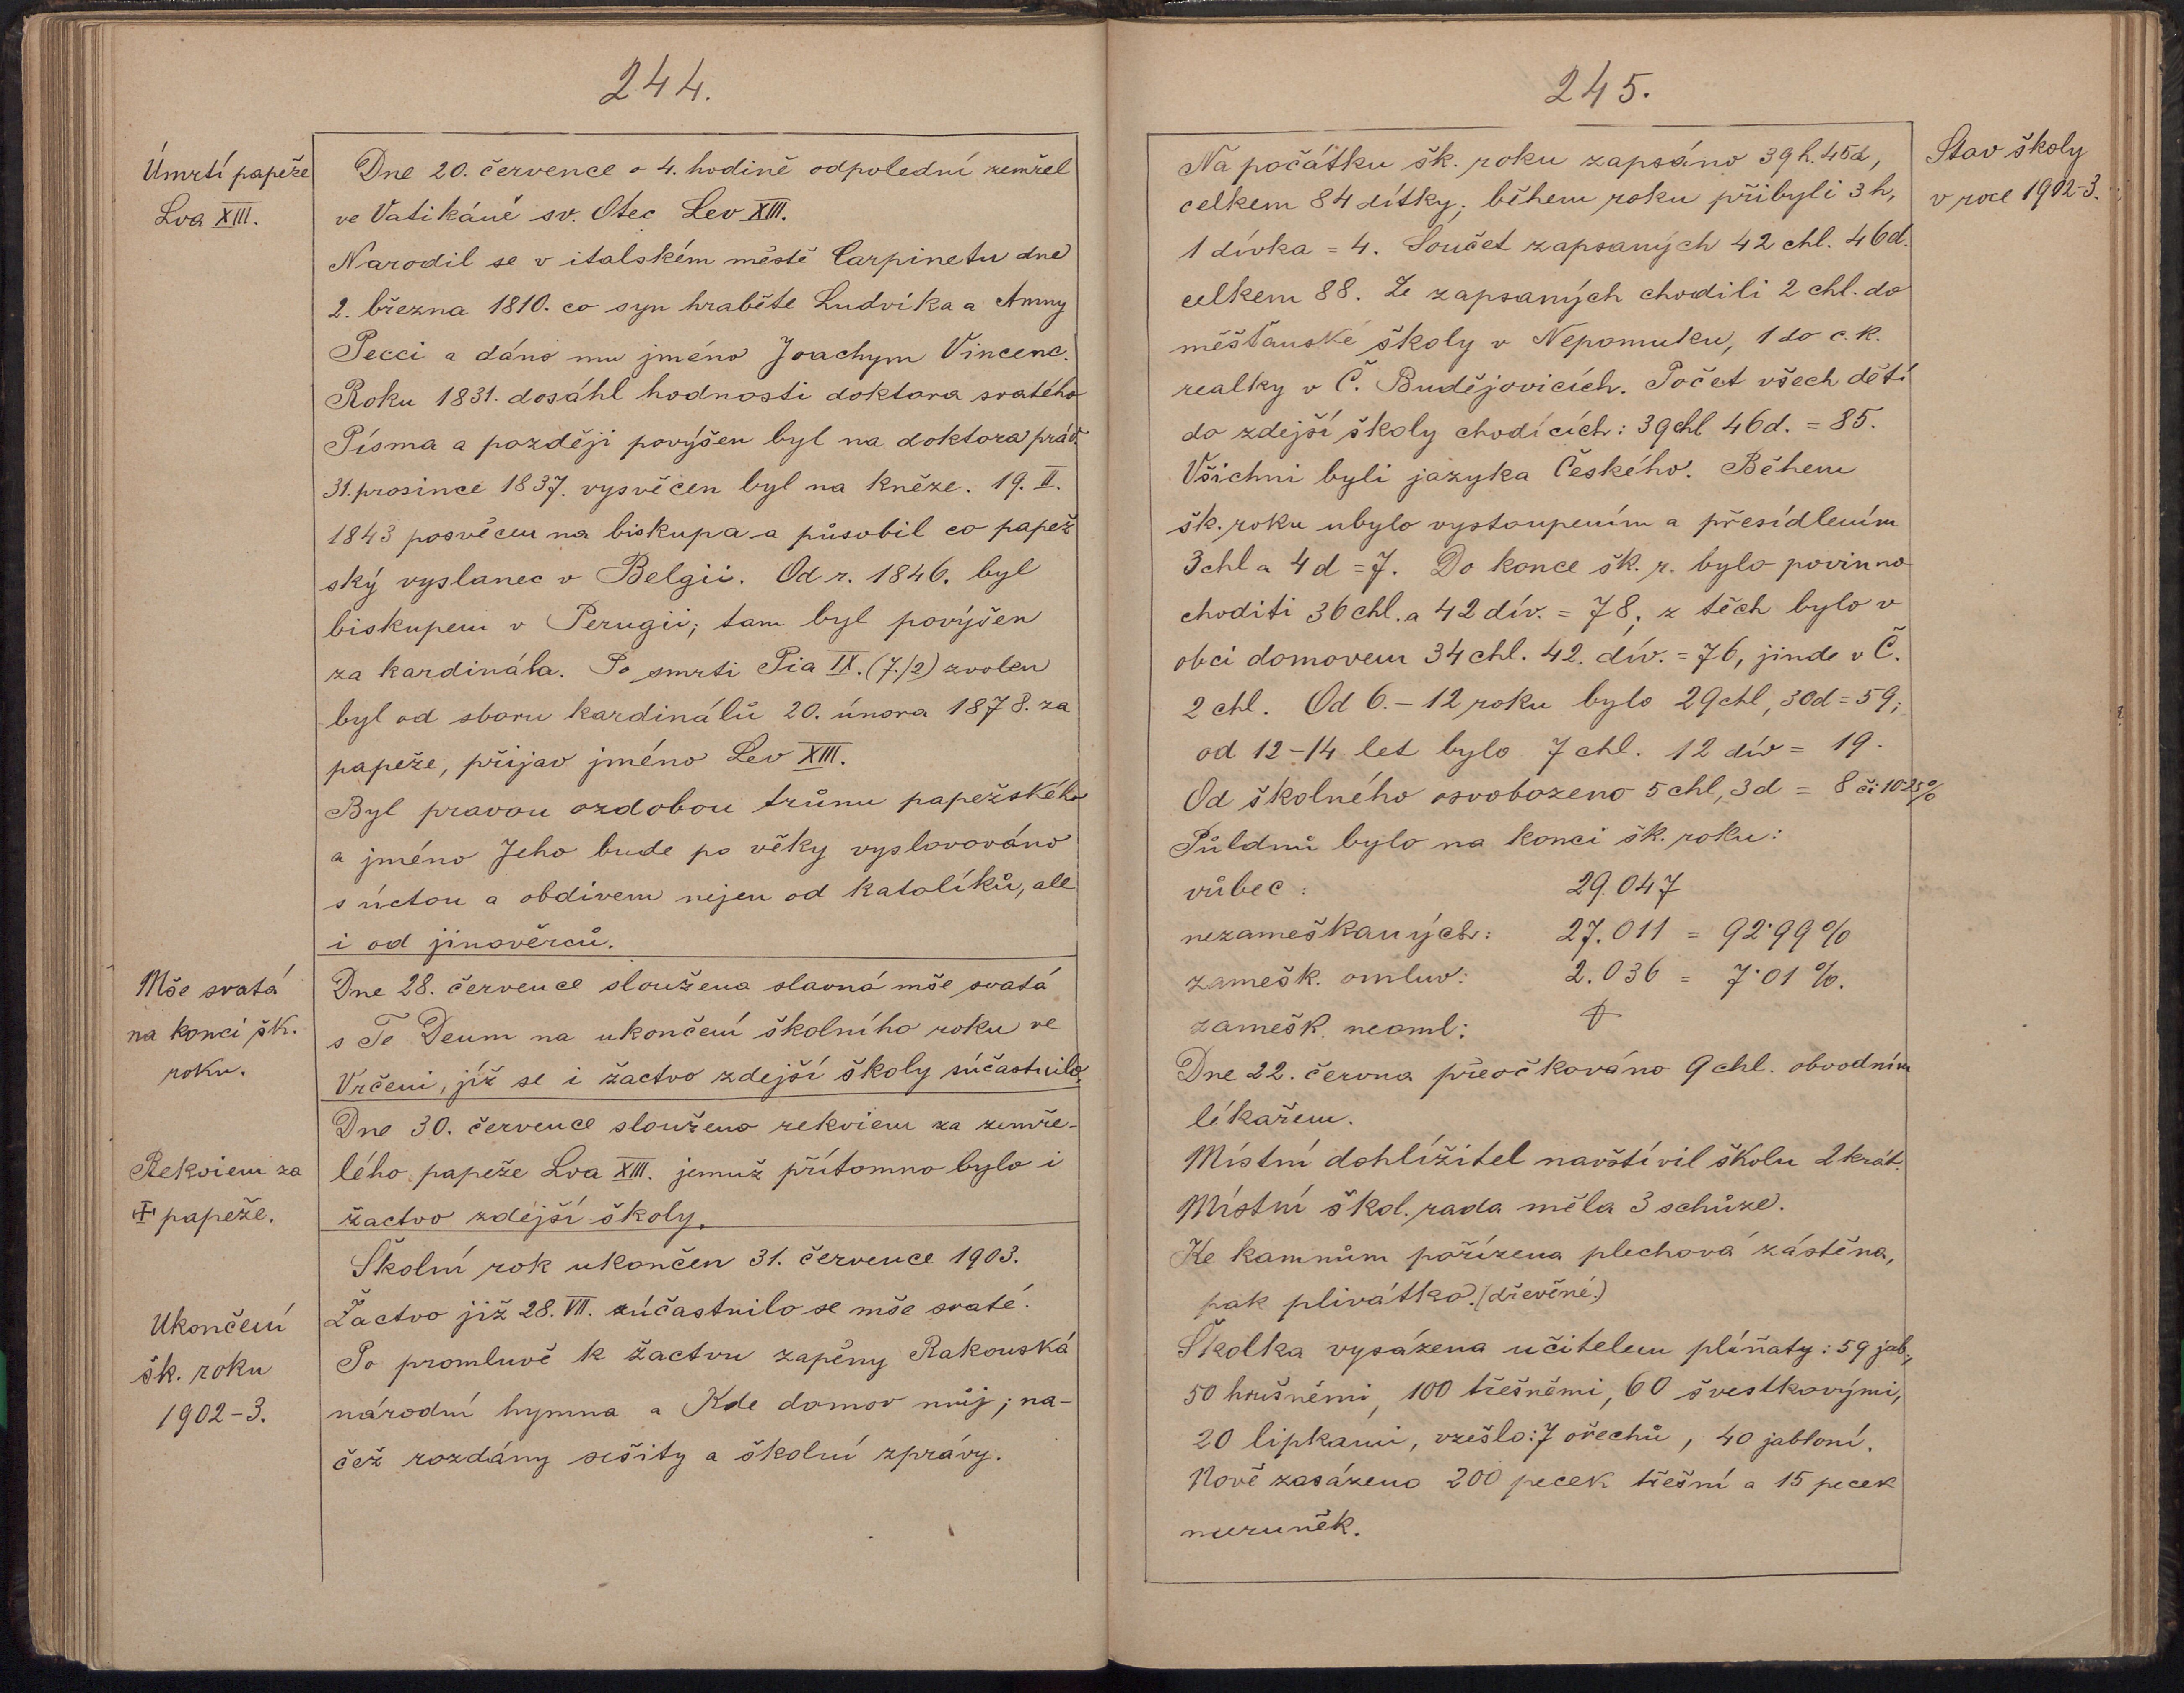 244.
Úmrtí papeže
Lva XIII.
Dne 20. července o 4. hodině odpolední zemřel
ve Vatikáně sv. Otec Lev XIII.
Narodil se v italském městě Carpinetu dne
2. března 1810. co syn hraběte Ludvíka a Anny
Pecci a dáno mu jméno Joachym Vincenc.
Roku 1831. dosáhl hodnosti doktora svatého
Písma a později povýšen byl na doktora práv.
31. prosince 1837. vysvěcen byl na kněze. 19. II.
1843 posvěcen na biskupa a působil co papež
ský vyslanec v Belgii. Od r. 1846. byl
biskupem v Perugii; tam byl povýšen
za kardinála. Po smrti Pia IX. (7./2) zvolen
byl od sboru kardinálů 20. února 1878. za
papeže, přijav jméno Lev XIII.
Byl pravou ozdobou trůnu papežského
a jméno Jeho bude po věky vyslovováno
s úctou a obdivem nejen od katolíků, ale
i od jinověrců.
Mše svatá
na konci šk.
roku.
Dne 28. července sloužena slavná mše svatá
s Te Deum na ukončení školního roku ve
Vrčeni, jíž se i žactvo zdejší školy súčastnilo.
Rekviem za
† papeže.
Dne 30. července slouženo rekviem za zemře-
lého papeže Lva XIII. jemuž přítomno bylo i
žactvo zdejší školy.
Ukončení
šk. roku
1902-3.
Školní rok ukončen 31. července 1903.
Žactvo již 28. VII. súčastnilo se mše svaté.
Po promluvě k žactvu zapěny Rakouská
národní hymna a Kde domov můj; na-
čež rozdány sešity a školní zprávy.
245.
Stav školy
v roce 1902-3.
Na počátku šk. roku zapsáno 39 h. 45 d,
celkem 84 dítky; během roku přibyli 3 h,
1 dívka = 4. Součet zapsaných 42 chl. 46 d.
celkem 88. Ze zapsaných chodili 2 chl. do
měšťanské školy v Nepomuku, 1 do c. k.
realky v Č. Budějovicích. Počet všech dětí
do zdejší školy chodících: 39 chl 46 d. = 85.
Všichni byli jazyka Českého. Během
šk. roku ubylo vystoupením a přesídlením
3 chl a 4 d = 7. Do konce šk. r. bylo povinno
choditi 36 chl. a 42 dív. = 78; z těch bylo v
obci domovem 34 chl. 42. dív. = 76, jinde v Č.
2 chl. Od 6. – 12 roku bylo 29 chl, 30 d = 59;
od 12 – 14 let bylo 7 chl. 12 dív = 19.
Od školného osvobozeno 5 chl, 3 d = 8 či 10·25%
Půldnů bylo na konci šk. roku:
vůbec: 29.047
nezameškaných: 27.011 = 92·99 %
zamešk. omluv: 2.036 = 7·01 %.
zamešk. neoml:
Dne 22. června přeočkováno 9 chl. obvodním
lékařem.
Místní dohlížitel navštívil školu 2 krát.
Místní škol. rada měla 3 schůze.
Ke kamnům pořízena plechová zástěna,
pak plivátko. (dřevěné.)
Školka vysázena učitelem pláňaty: 59 jab.,
50 hrušněmi, 100 třešněmi, 60 švestkovými,
20 lipkami, vzešlo: 7 ořechů, 40 jabloní.
Nově zasázeno 200 pecek třešní a 15 pecek
meruněk.